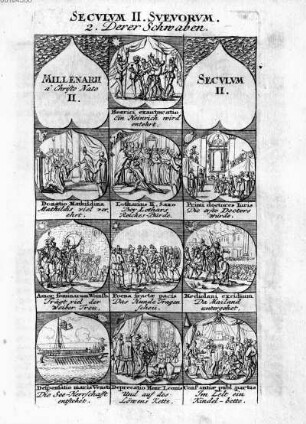 SECULUM II. SVEVORUM.
2. Derer Schwaben.
MILLENARII
à Christo Nato
II.
SECULUM
II.
Henrici exauctoratio
Ein Heinrich wird
entehrt.
Donatio Mathildina
Mathildis viel ver
ehrt.
Lotharius II. Saxo
Reiches-Bürde.
Primi doctores Iuris
Die erste Doctors
würde.
Amor feminarum Weinsb.
Trägt viel der
Weiber Treu.
Poena fractæ pacis
Die Hunde Tragen
schon.
Mediolani excidium
Da Mailand
untergehet.
Desponsatio maris Veneti
Die See-Herrschafft
entstehet.
Deprecatio Henr. Leonis
Und auf des
Löwens Kette.
Constantiæ
Im Zelt ein
Kindel-bette.